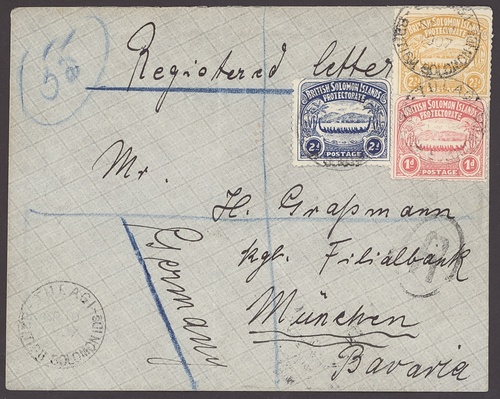 55
Registered letter
BRITISH SOLOMON ISLANDS
PROTECTORATE
BRITISH SOLOMON ISLANDS
PROTECTORATE
2d 2d
POSTAGE
BRITISH SOLOMON ISLANDS
PROTECTORATE
1d 1d
POSTAGE
Mr.
H. Graßmann
Kgl. Filialbank
München
Bavaria
Germany
R
TULAGI